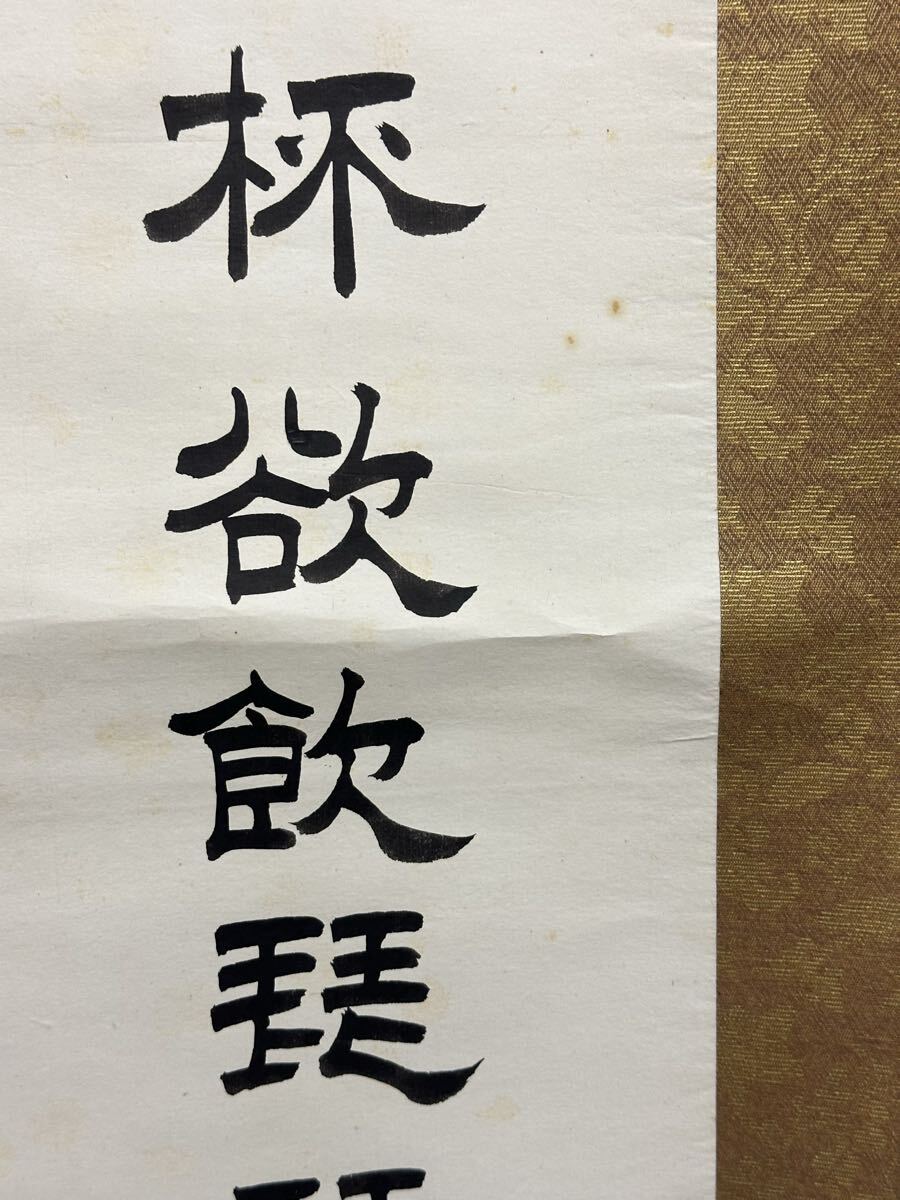 杯欲飲琵